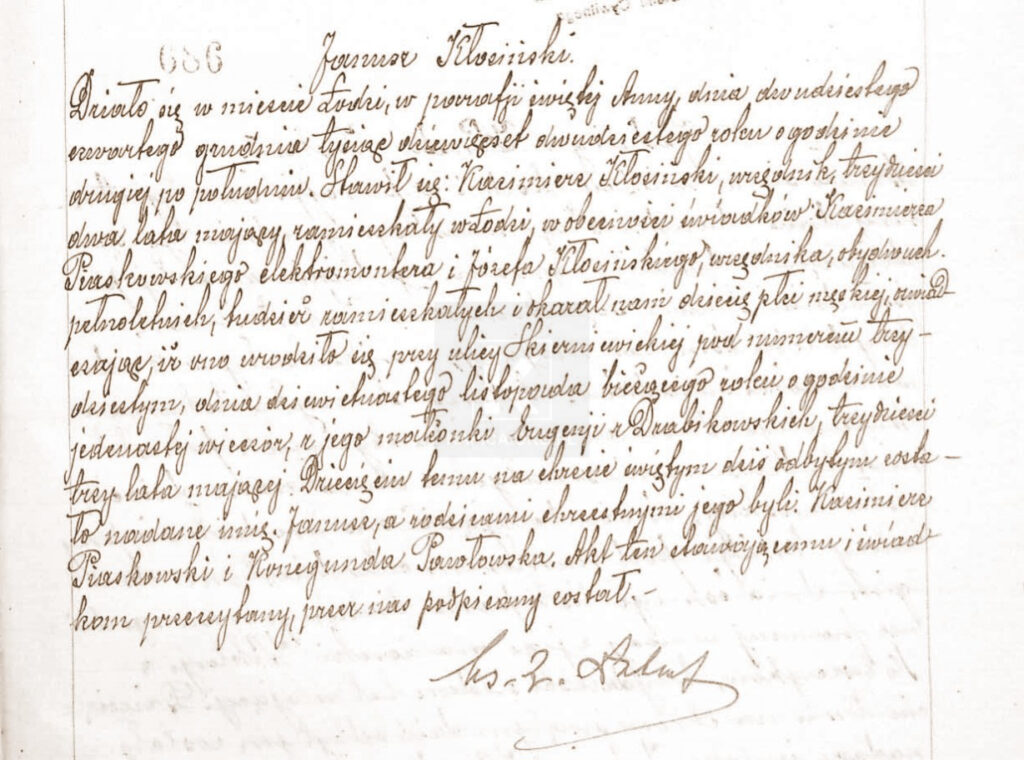 Janusz Kłosiński.
Działo się w mieście Łodzi, w parafji świętej Anny, dnia dwudziestego
czwartego grudnia tysiąc dziewięćset dwudziestego roku o godzinie
drugiej po południu. Stawił się: Kazimierz Kłosiński, urzędnik, trzydzieści
dwa lata mający, zamieszkały w Łodzi, w obecności świadków Kazimierza
Piaskowskiego elektromontera i Józefa Kłosińskiego, urzędnika, obydwuch
pełnoletnich, tudzież zamieszkałych i okazał nam dziecię płci męskiej, oświad-
czając, iż ono urodziło się przy ulicy Skierniewickiej pod numerem trzy-
dziestym, dnia dziewiętnastego listopada bieżącego roku o godzinie
jedenastej wieczór, z jego małżonki Eugenji z Drabikowskich, trzydzieści
trzy lata mającej. Dziecięciu temu na chrzcie świętym dziś odbytym zosta-
ło nadane imię Janusz, a rodzicami chrzestnymi jego byli: Kazimierz
Piaskowski i Konegunda Pawłowska. Akt ten stawiającemu i świad-
kom przeczytany, przez nas podpisany został.-